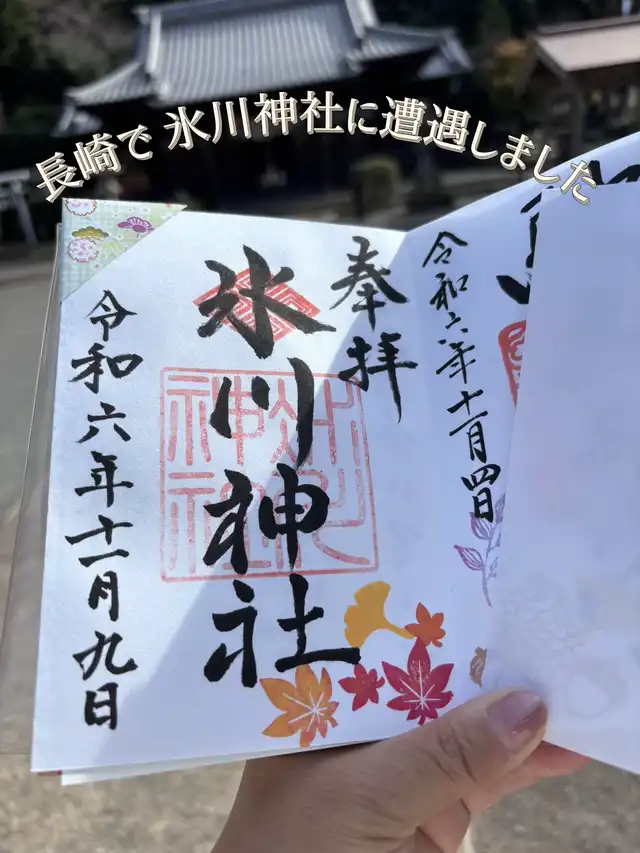 長崎で 氷川神社に遭遇しました
奉拝
氷川神社
氷川神社
令和六年十一月九日
令和六年十一月四日